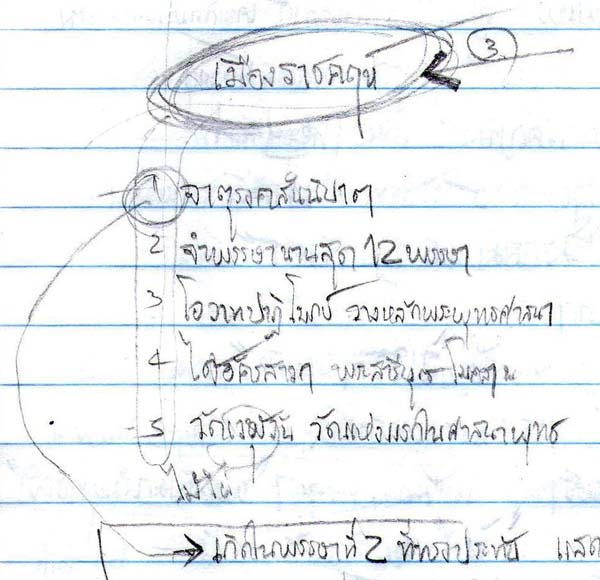 3
เมืองราชคฤห์
1 จาตุรงคสันนิบาต
2 จำพรรษานานสุด 12 พรรษา
3 โอวาทปาฏิโมกข์ วางหลักพระพุทธศาสนา
4 ได้อัครสาวก พระสารีบุตร โมคคลาน
5 วัดเวฬุวัน วัดแห่งแรกในศาสนาพุทธ
ไม้ไผ่
เกิดในพรรษาที่ 2 ที่ทรงประทับ แสด